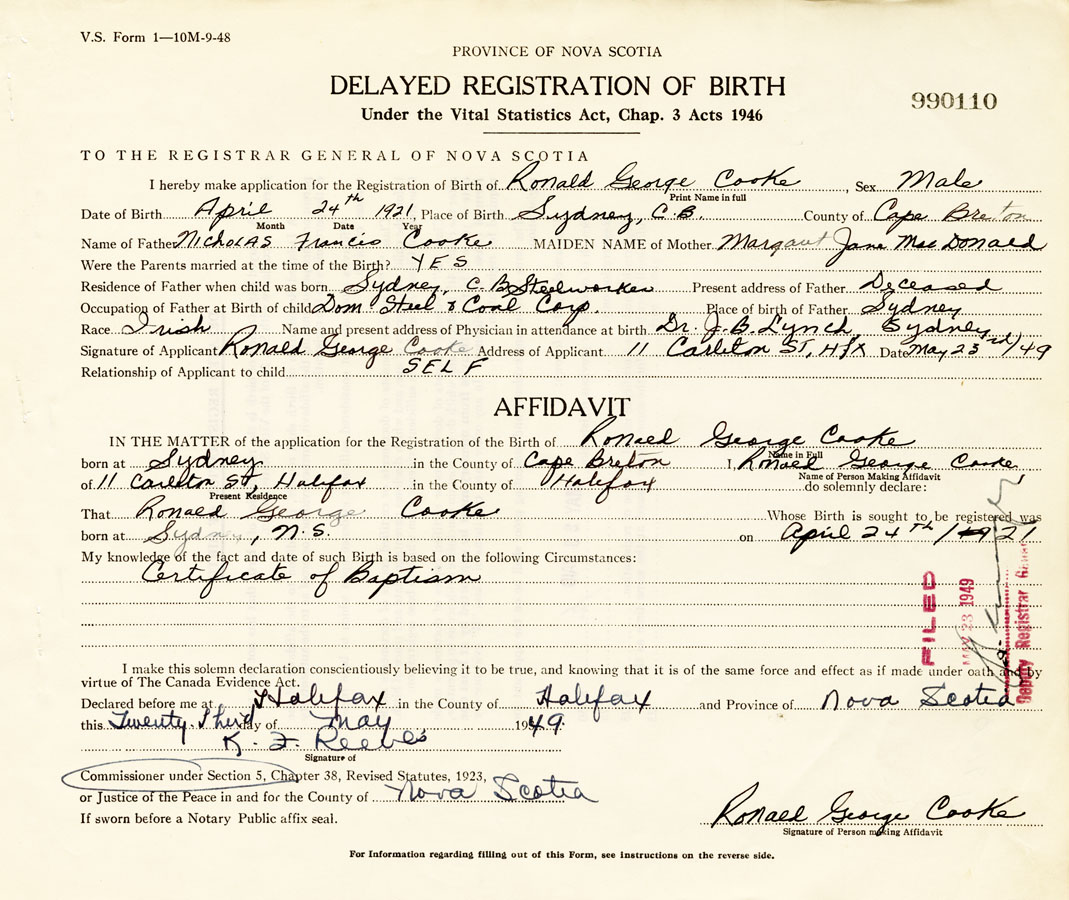 V.S. Form 1—10M-9-48
PROVINCE OF NOVA SCOTIA
DELAYED REGISTRATION OF BIRTH
990110
Under the Vital Statistics Act, Chap. 3 Acts 1946
TO THE REGISTRAR GENERAL OF NOVA SCOTIA
I hereby make application for the Registration of Birth of Ronald George Cooke, Sex Male
Print Name in full
Date of Birth April 24th 1921, Place of Birth Sydney, C.B. County of Cape Breton
Month Date Year
Name of Father Nicholas Francis Cooke MAIDEN NAME of Mother Margaret Jane MacDonald
Were the Parents married at the time of the Birth? YES
Residence of Father when child was born Sydney, C.B Steelworker Present address of Father Deceased
Occupation of Father at Birth of child Dom Steel & Coal Corp. Place of birth of Father Sydney
Race Irish Name and present address of Physician in attendance at birth Dr. J.B. Lynch, Sydney
Signature of Applicant Ronald George Cooke Address of Applicant 11 Carleton ST, Hfx Date May 23rd/49
Relationship of Applicant to child SELF
AFFIDAVIT
IN THE MATTER of the application for the Registration of the Birth of Ronald George Cooke
Name in Full
born at Sydney in the County of Cape Breton I, Ronald George Cooke
Name of Person Making Affidavit
of 11 Carleton St, Halifax in the County of Halifax do solemnly declare:
Present Residence
That Ronald George Cooke Whose Birth is sought to be registered was
born at Sydney, N.S. on April 24TH/1921
My knowledge of the fact and date of such Birth is based on the following Circumstances:
Certificate of Baptism
FILED
MAY 23 1949
Deputy Registrar
I make this solemn declaration conscientiously believing it to be true, and knowing that it is of the same force and effect as if made under oath and by
virtue of The Canada Evidence Act.
Declared before me at Halifax in the County of Halifax and Province of Nova Scotia
this Twenty-Third day of May 1949.
K. F. Reeves
Signature of
Commissioner under Section 5, Chapter 38, Revised Statutes, 1923,
or Justice of the Peace in and for the County of Nova Scotia
If sworn before a Notary Public affix seal.
Ronald George Cooke
Signature of Person making Affidavit
For Information regarding filling out of this Form, see instructions on the reverse side.